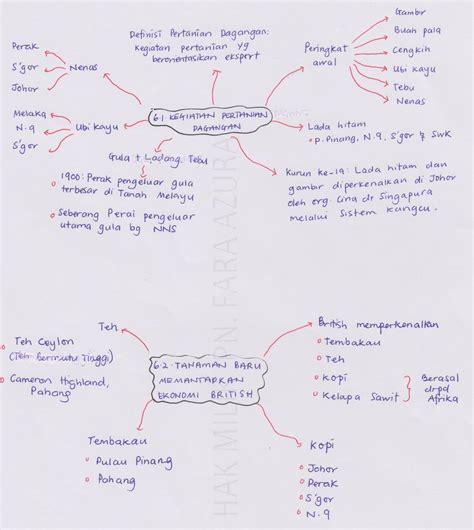 Definisi Pertanian Dagangan:
kegiatan pertanian yg
berorientasikan eksport
Peringkat
awal
Gambir
Buah pala
Cengkih
Ubi kayu
Tebu
Nenas
Perak
S'gor
Johor
Nenas
6.1 KEGIATAN PERTANIAN
DAGANGAN
Melaka
N.9
S'gor
Ubi kayu
Lada hitam
P. Pinang, N.9, S'gor & SWK
Gula + Ladang Tebu
1900: Perak pengeluar gula
terbesar di Tanah Melayu
Seberang Perai pengeluar
utama gula bg NNS
Kurun ke-19: Lada hitam dan
gambir diperkenalkan di Johor
oleh org. Cina dr Singapura
melalui Sistem Kangcu.
HAK MILIK PN. FARA AZURA
Teh
Teh Ceylon
(Teh Bermutu Tinggi)
Cameron Highland,
Pahang
6.2 TANAMAN BARU
MEMANTAPKAN
EKONOMI BRITISH
British memperkenalkan
Tembakau
Teh
Kopi
Kelapa Sawit
Berasal
drpd
Afrika
Tembakau
Pulau Pinang
Pahang
Kopi
Johor
Perak
S'gor
N.9